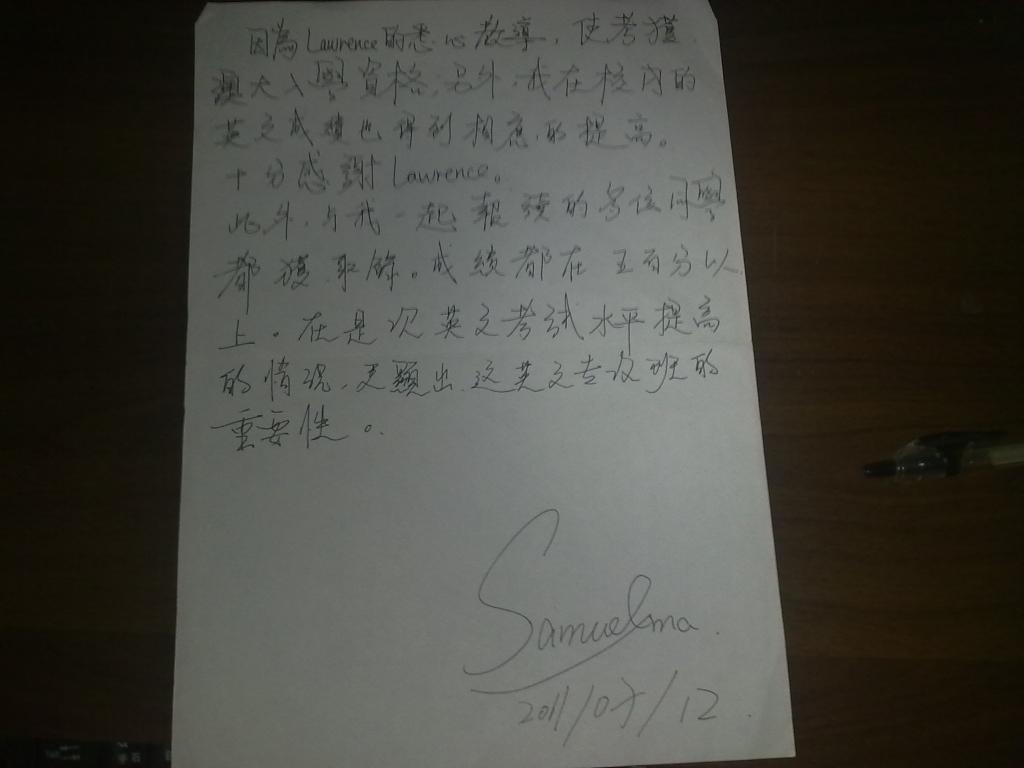 因為Lawrence的悉心教導，使考獲
澳大入學資格。另外，我在校內的
英文成績也得到相應的提高。
十分感謝Lawrence。
此外，与我一起報讀的多位同學
都獲取錄。成績都在五百分以
上。在是次英文考試水平提高
的情況，更顯出这英文专设班的
重要性。
Samuelma.
2011/07/12.